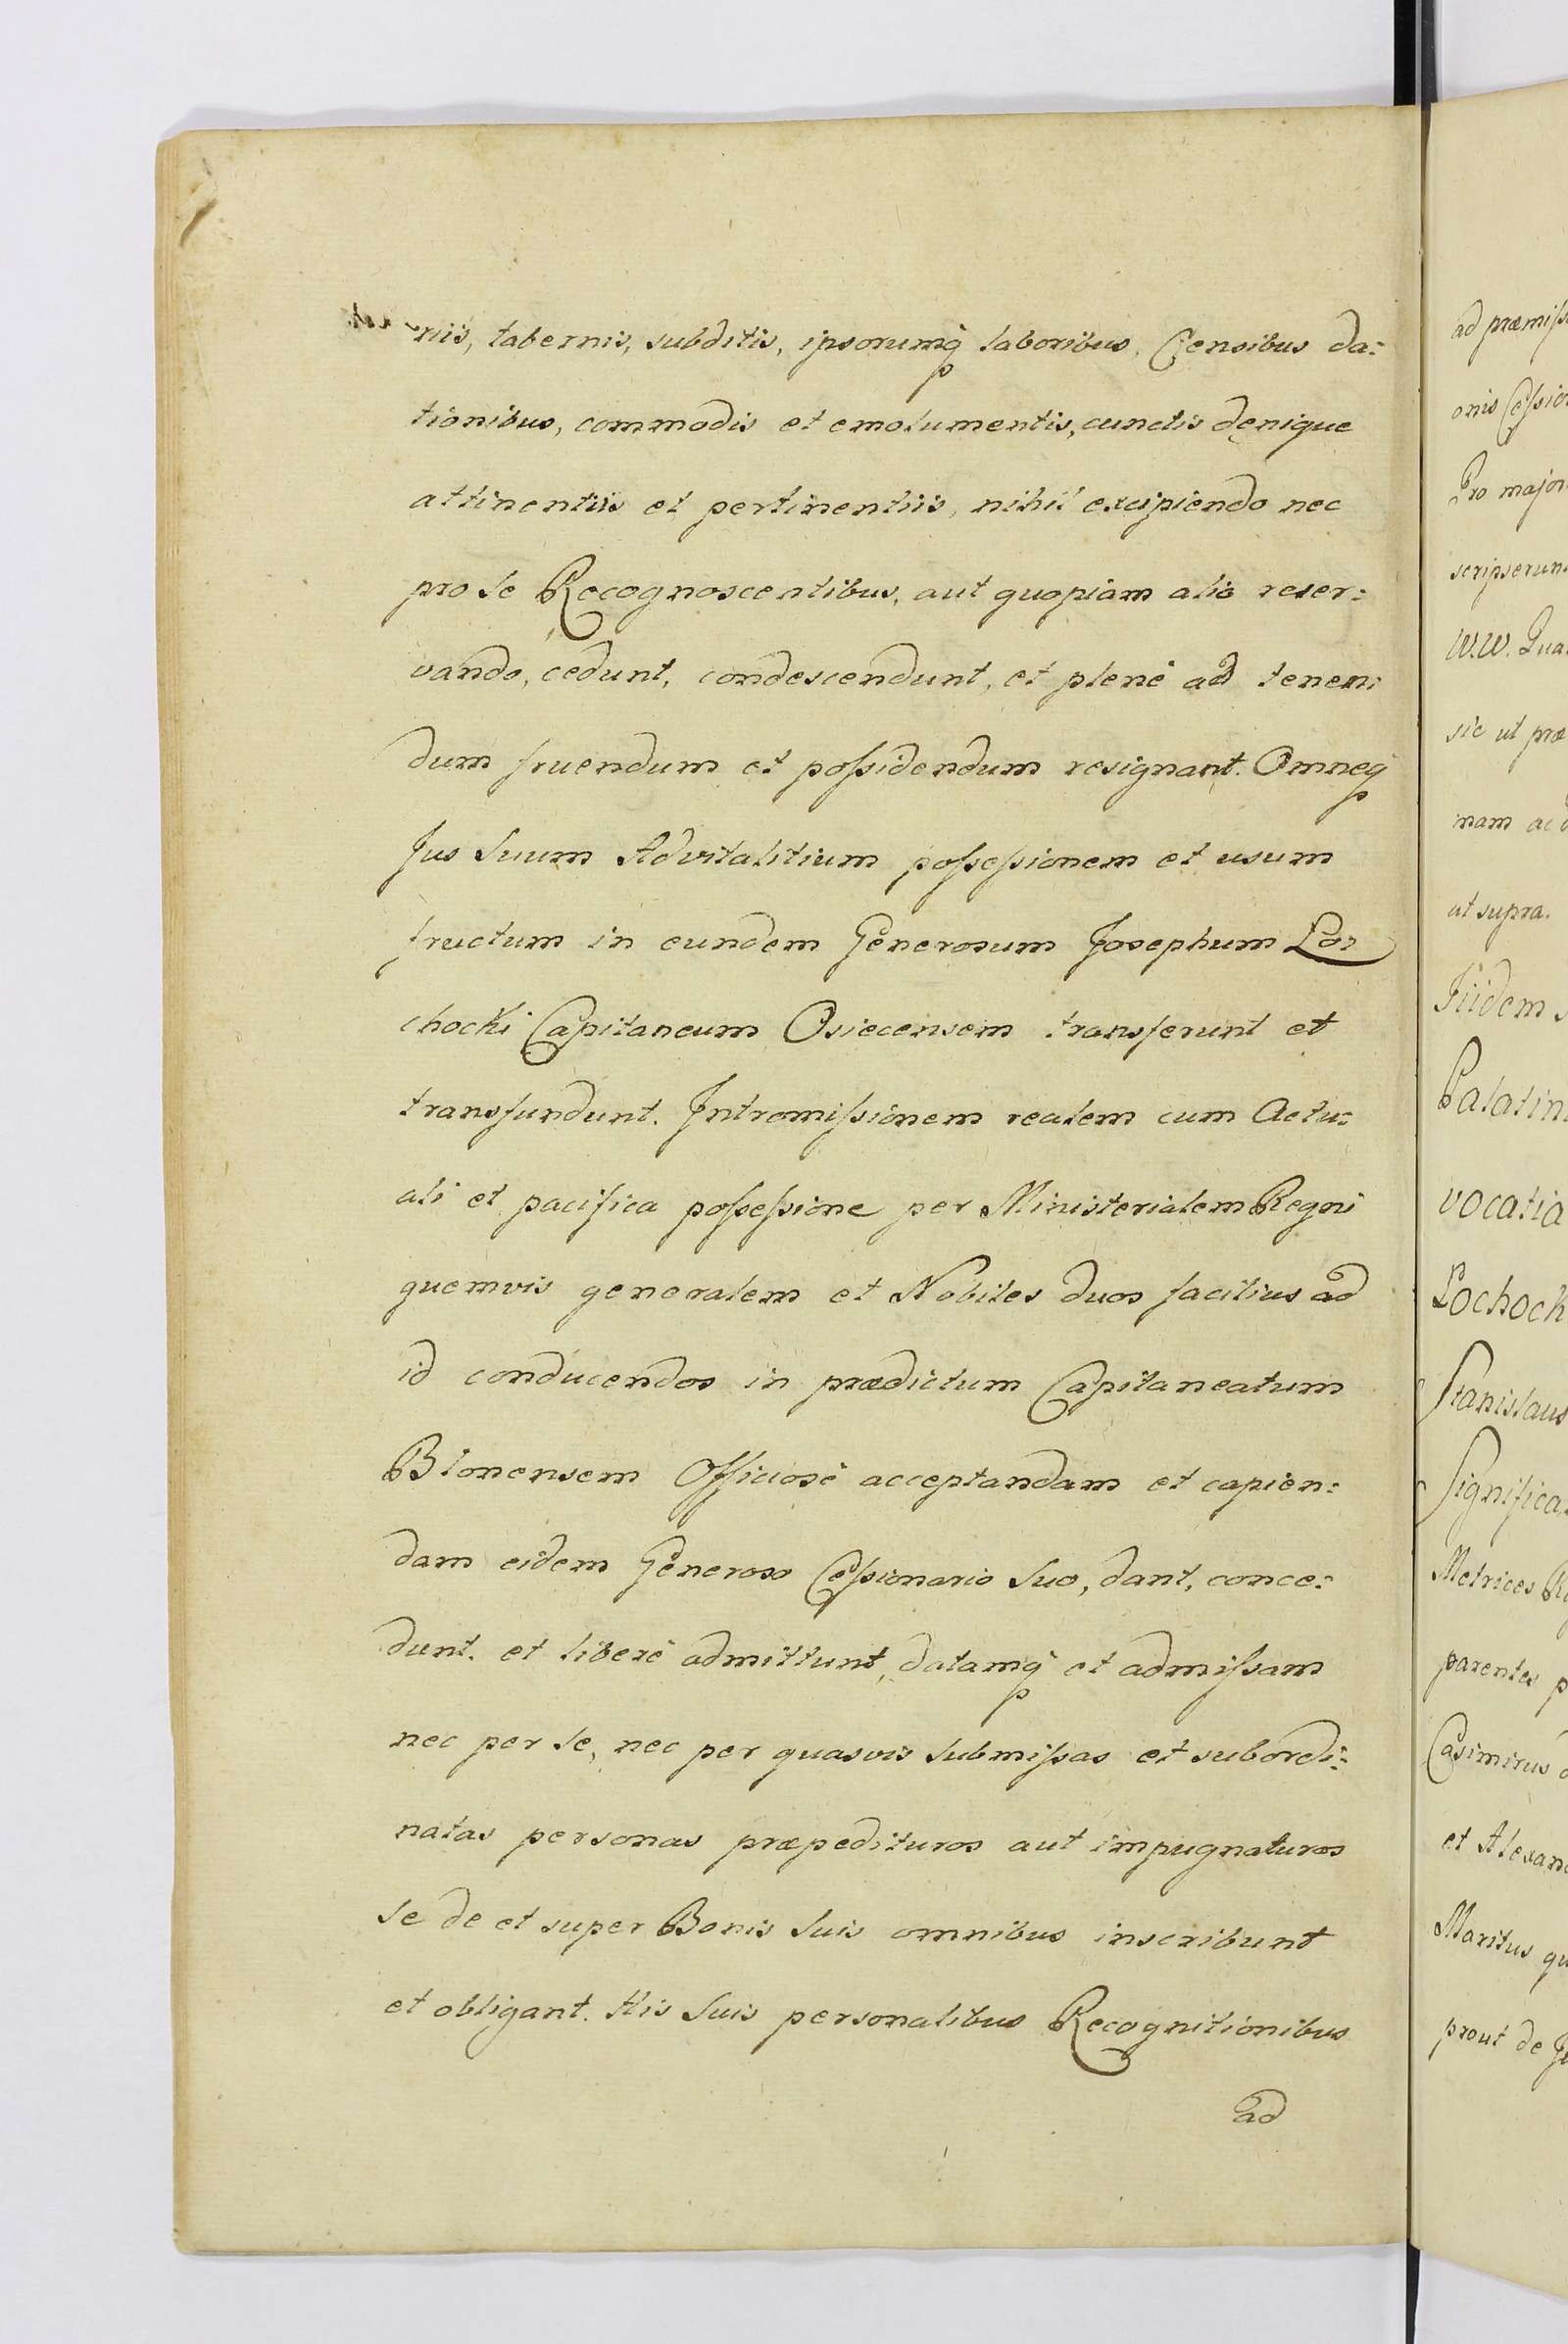 riis, tabernis, subditis, ipsorumq́ laboribus, Censibus da:
tionibus, commodis et emolumentis, cunctis denique
attinentiis et pertinentiis, nihil excipiendo nec
pro se Recognoscentibus, aut quopiam alio reser:
vando, cedunt, condescendunt, et plenè ad tenen:
dum fruendum et poſsidendum resignant. Omneq́
Jus Suum Advitalitium poſseſsionem et usum
fructum in eundem Generosum Josephum Lo:
chocki Capitaneum Osiecensem transferunt et
transfundunt. Intromiſsionem realem cum Actu:
ali et pacifica poſseſsione per Ministerialem Regni
quemvis generalem et Nobiles duos facilius ad
id conducendos in prædictum Capitaneatum
Blonensem Officiosè acceptandam et capien:
dam eidem Generoso Ceſsionario Suo, dant, conce:
dunt. et liberè admittunt, datamq́ et admiſsam
nec per se, nec per quasvis submiſsas et subordi:
natas personas præpedituros aut impugnaturos
se de et super Bonis Suis omnibus inscribunt
et obligant. His Suis personalibus Recognitionibus
ad
ad præmiſs
onis Ceſsio
Pro major
scripserun
W.W. Qua
sic ut præ
mam ac
ut supra.
Iidem
Palatin
vocatia
Lochock
Stanislaus
Significa
Metrices
parentes p
Casimirus
et Alexan
Maritus qu
prout de